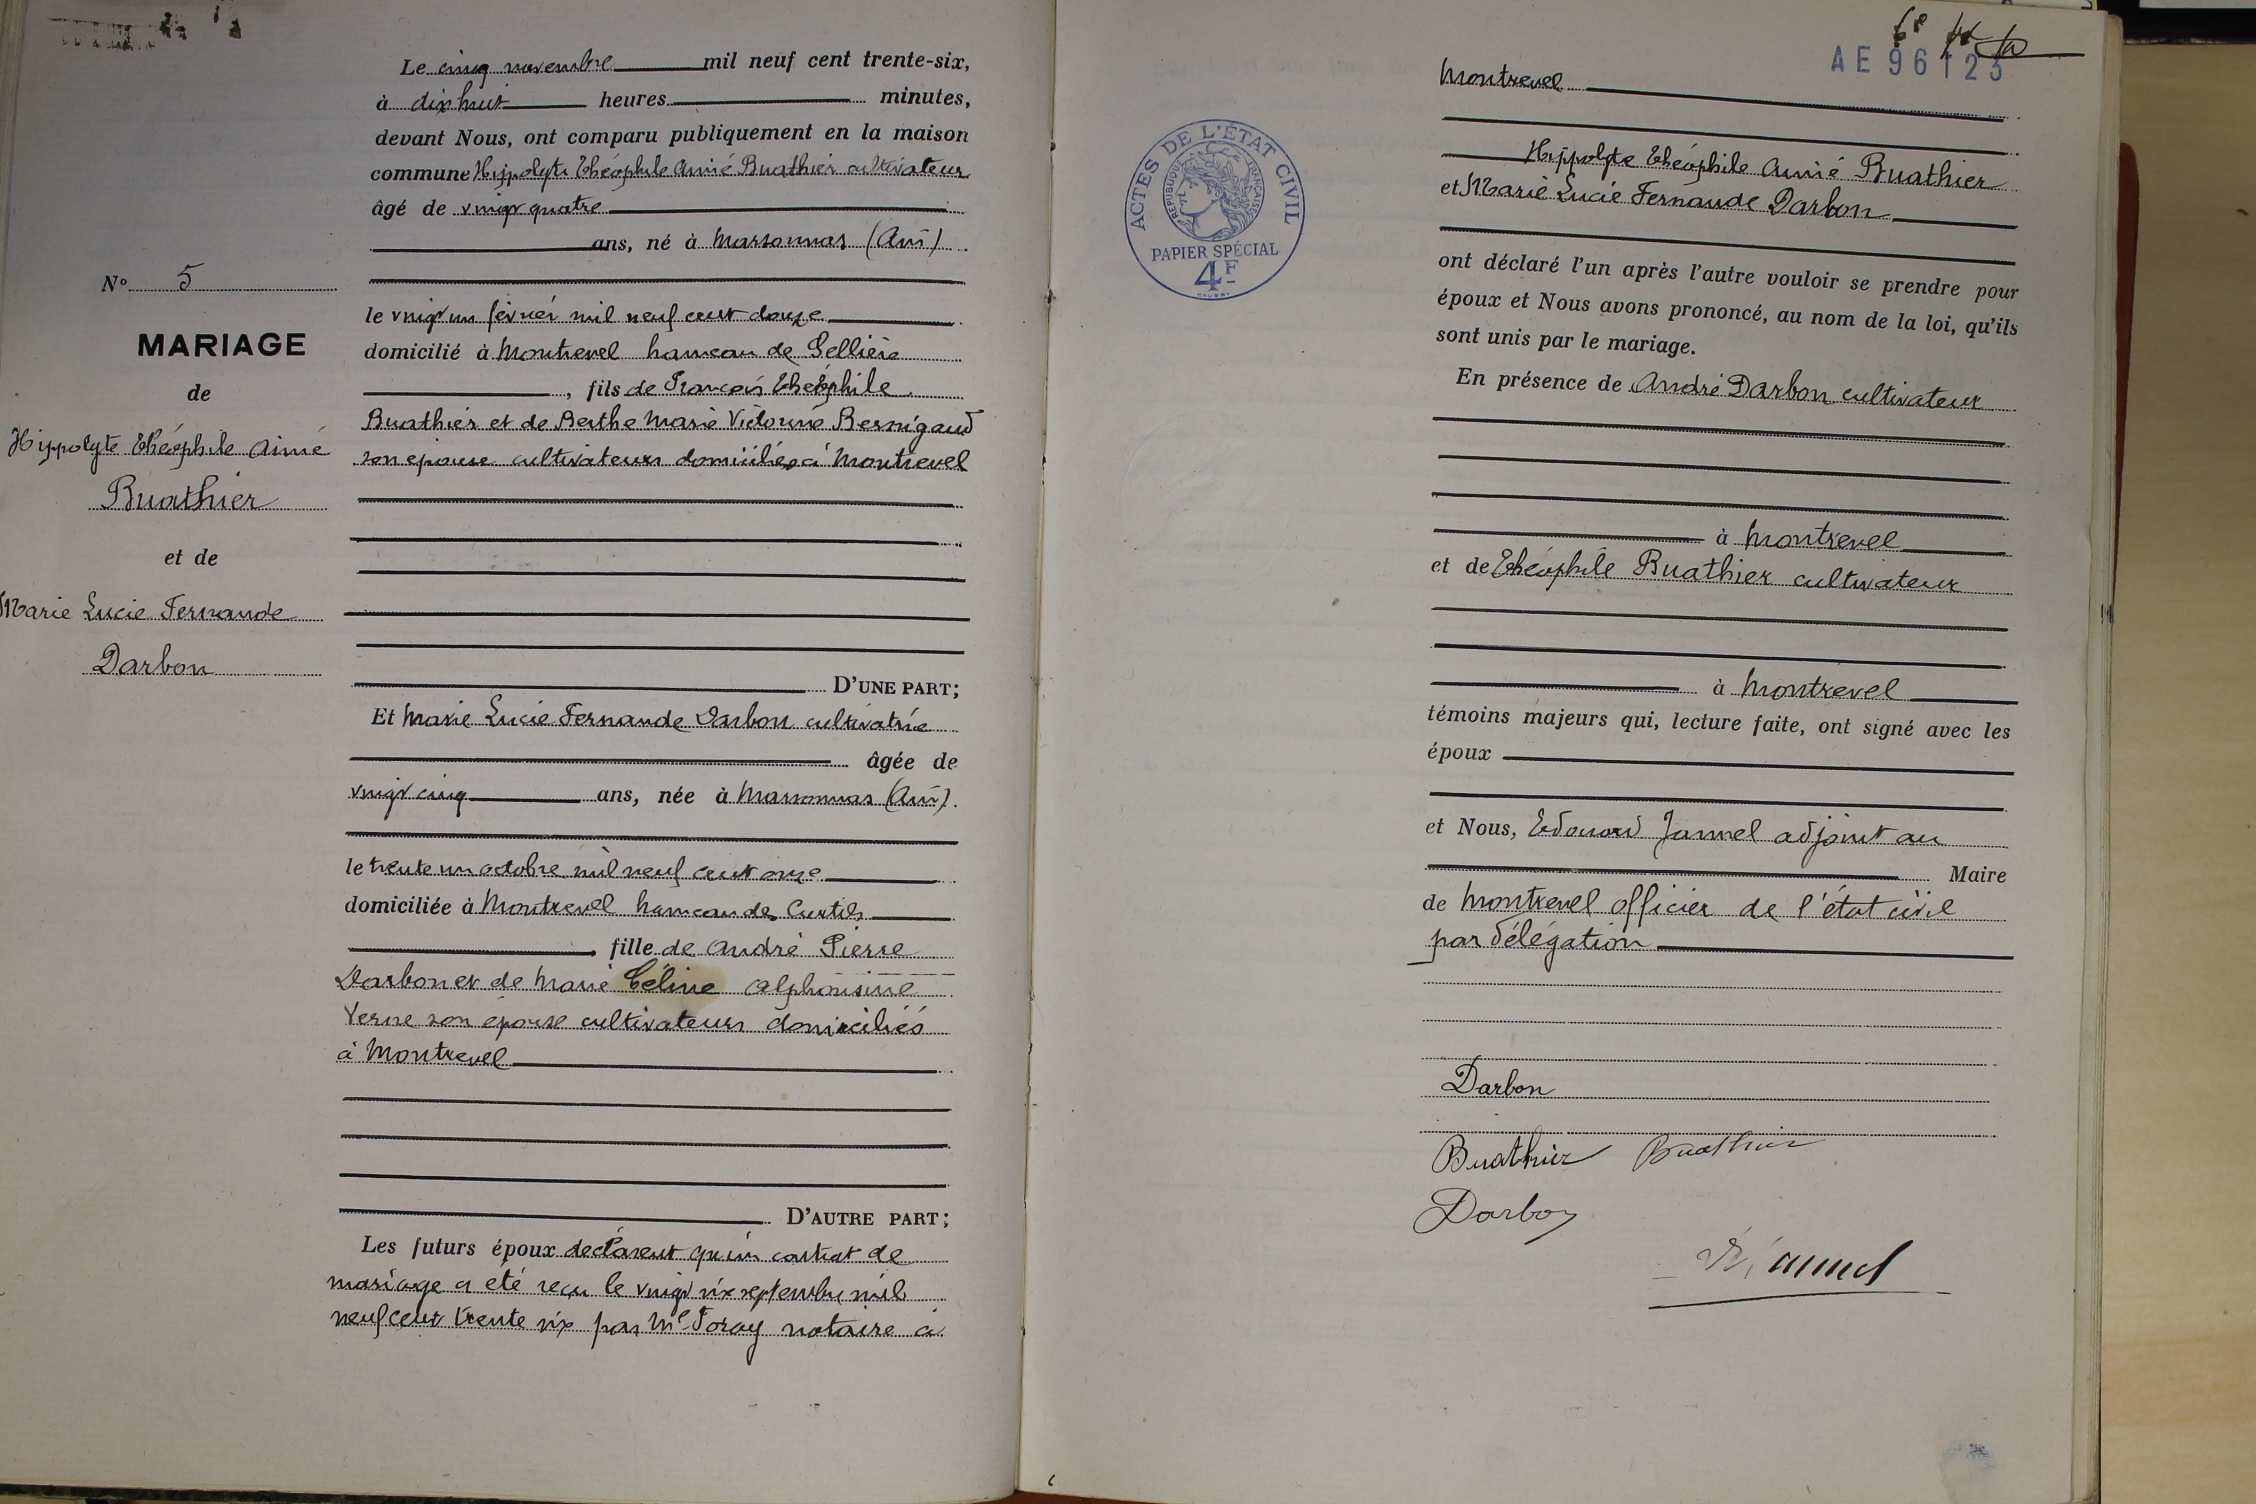 Nº 5
MARIAGE
de
Hippolyte Théophile Aimé
Buathier
et de
Marie Lucie Fernande
Darbon
Le cinq novembre mil neuf cent trente-six,
à dix huit heures minutes,
devant Nous, ont comparu publiquement en la maison
commune Hippolyte Théophile Aimé Buathier cultivateur
âgé de vingt quatre
ans, né à Marsonnas (Ain)
le vingt un février mil neuf cent douze
domicilié à Montrevel hameau de
, fils de François Théophile
Buathier et de Berthe Marie Victorine Bernigaud
son épouse cultivateurs domiciliés à Montrevel
D'UNE PART;
Et Marie Lucie Fernande Darbon cultivatrice
âgée de
vingt cinq ans, née à Marsonnas (Ain).
le trente un octobre mil neuf cent onze
domiciliée à Montrevel hameau des Curtils
, fille de André Pierre
Darbon et de Marie Céline Alphonsine
Verne son épouse cultivateurs domiciliés
à Montrevel
D'AUTRE PART;
Les futurs époux déclarent qu'un contrat de
mariage a été reçu le vingt six septembre mil
neuf cent trente six par Me Foray notaire à
ACTES DE L'ÉTAT CIVIL
RÉPUBLIQUE FRANÇAISE
PAPIER SPÉCIAL
4F
6e
AE 96123
Montrevel
Hippolyte Théophile Aimé Buathier
et Marie Lucie Fernande Darbon
ont déclaré l'un après l'autre vouloir se prendre pour
époux et Nous avons prononcé, au nom de la loi, qu'ils
sont unis par le mariage.
En présence de André Darbon cultivateur
à Montrevel
et de Théophile Buathier cultivateur
à Montrevel
témoins majeurs qui, lecture faite, ont signé avec les
époux
et Nous, Edouard Jannel adjoint au
Maire
de Montrevel officier de l'état civil
par délégation
Darbon
Buathier Buathier
Darbon
Jannel